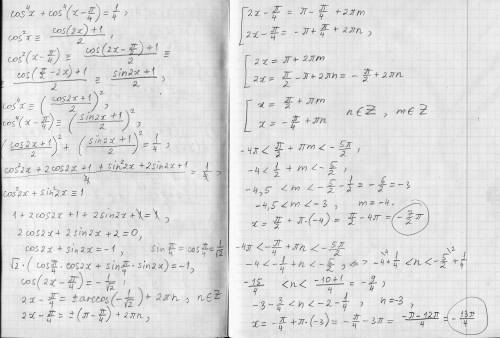 cos⁴x + cos⁴(x - π/4) = 1/4,
cos²x ≡ (cos(2x)+1)/2,
cos²(x - π/4) ≡ (cos(2x - π/2)+1)/2 ≡
(cos(π/2 - 2x)+1)/2 ≡ (sin2x+1)/2,
cos⁴x ≡ ((cos2x+1)/2)²
cos⁴(x - π/4) ≡ ((sin2x+1)/2)²
((cos2x+1)/2)² + ((sin2x+1)/2)² = 1/4,
(cos²2x + 2cos2x + 1 + sin²2x + 2sin2x + 1)/4 = 1/4,
cos²2x + sin²2x ≡ 1
1 + 2cos2x + 1 + 2sin2x + 1 = 1,
2cos2x + 2sin2x + 2 = 0,
cos2x + sin2x = -1, sin π/4 = cos π/4 = 1/√2
√2·(cos π/4 · cos2x + sin π/4 · sin2x) = -1,
cos(2x - π/4) = -1/√2
2x - π/4 = ± arccos(-1/√2) + 2πn, n∈Z
2x - π/4 = ±(π - π/4) + 2πn,
[ 2x - π/4 = π - π/4 + 2πm
2x - π/4 = -π + π/4 + 2πn,
[ 2x = π + 2πm
2x = π/2 - π + 2πn = -π/2 + 2πn
[ x = π/2 + πm
x = -π/4 + πn n∈Z, m∈Z
-4π < π/2 + πm < -5π/2,
-4 < 1/2 + m < -5/2,
-4,5 < m < -5/2 - 1/2 = -6/2 = -3
-4,5 < m < -3, m = -4.
x = π/2 + π·(-4) = π/2 - 4π = -7/2π
-4π < -π/4 + πn < -5π/2
-4 < -1/4 + n < -5/2, ⇔ -4 + 1/4 < n < -5/2 + 1/4
-15/4 < n < (-10+1)/4 = -9/4
-3 - 3/4 < n < -2 - 1/4, n = -3
x = -π/4 + π·(-3) = -π/4 - 3π = (-π - 12π)/4 = -13π/4